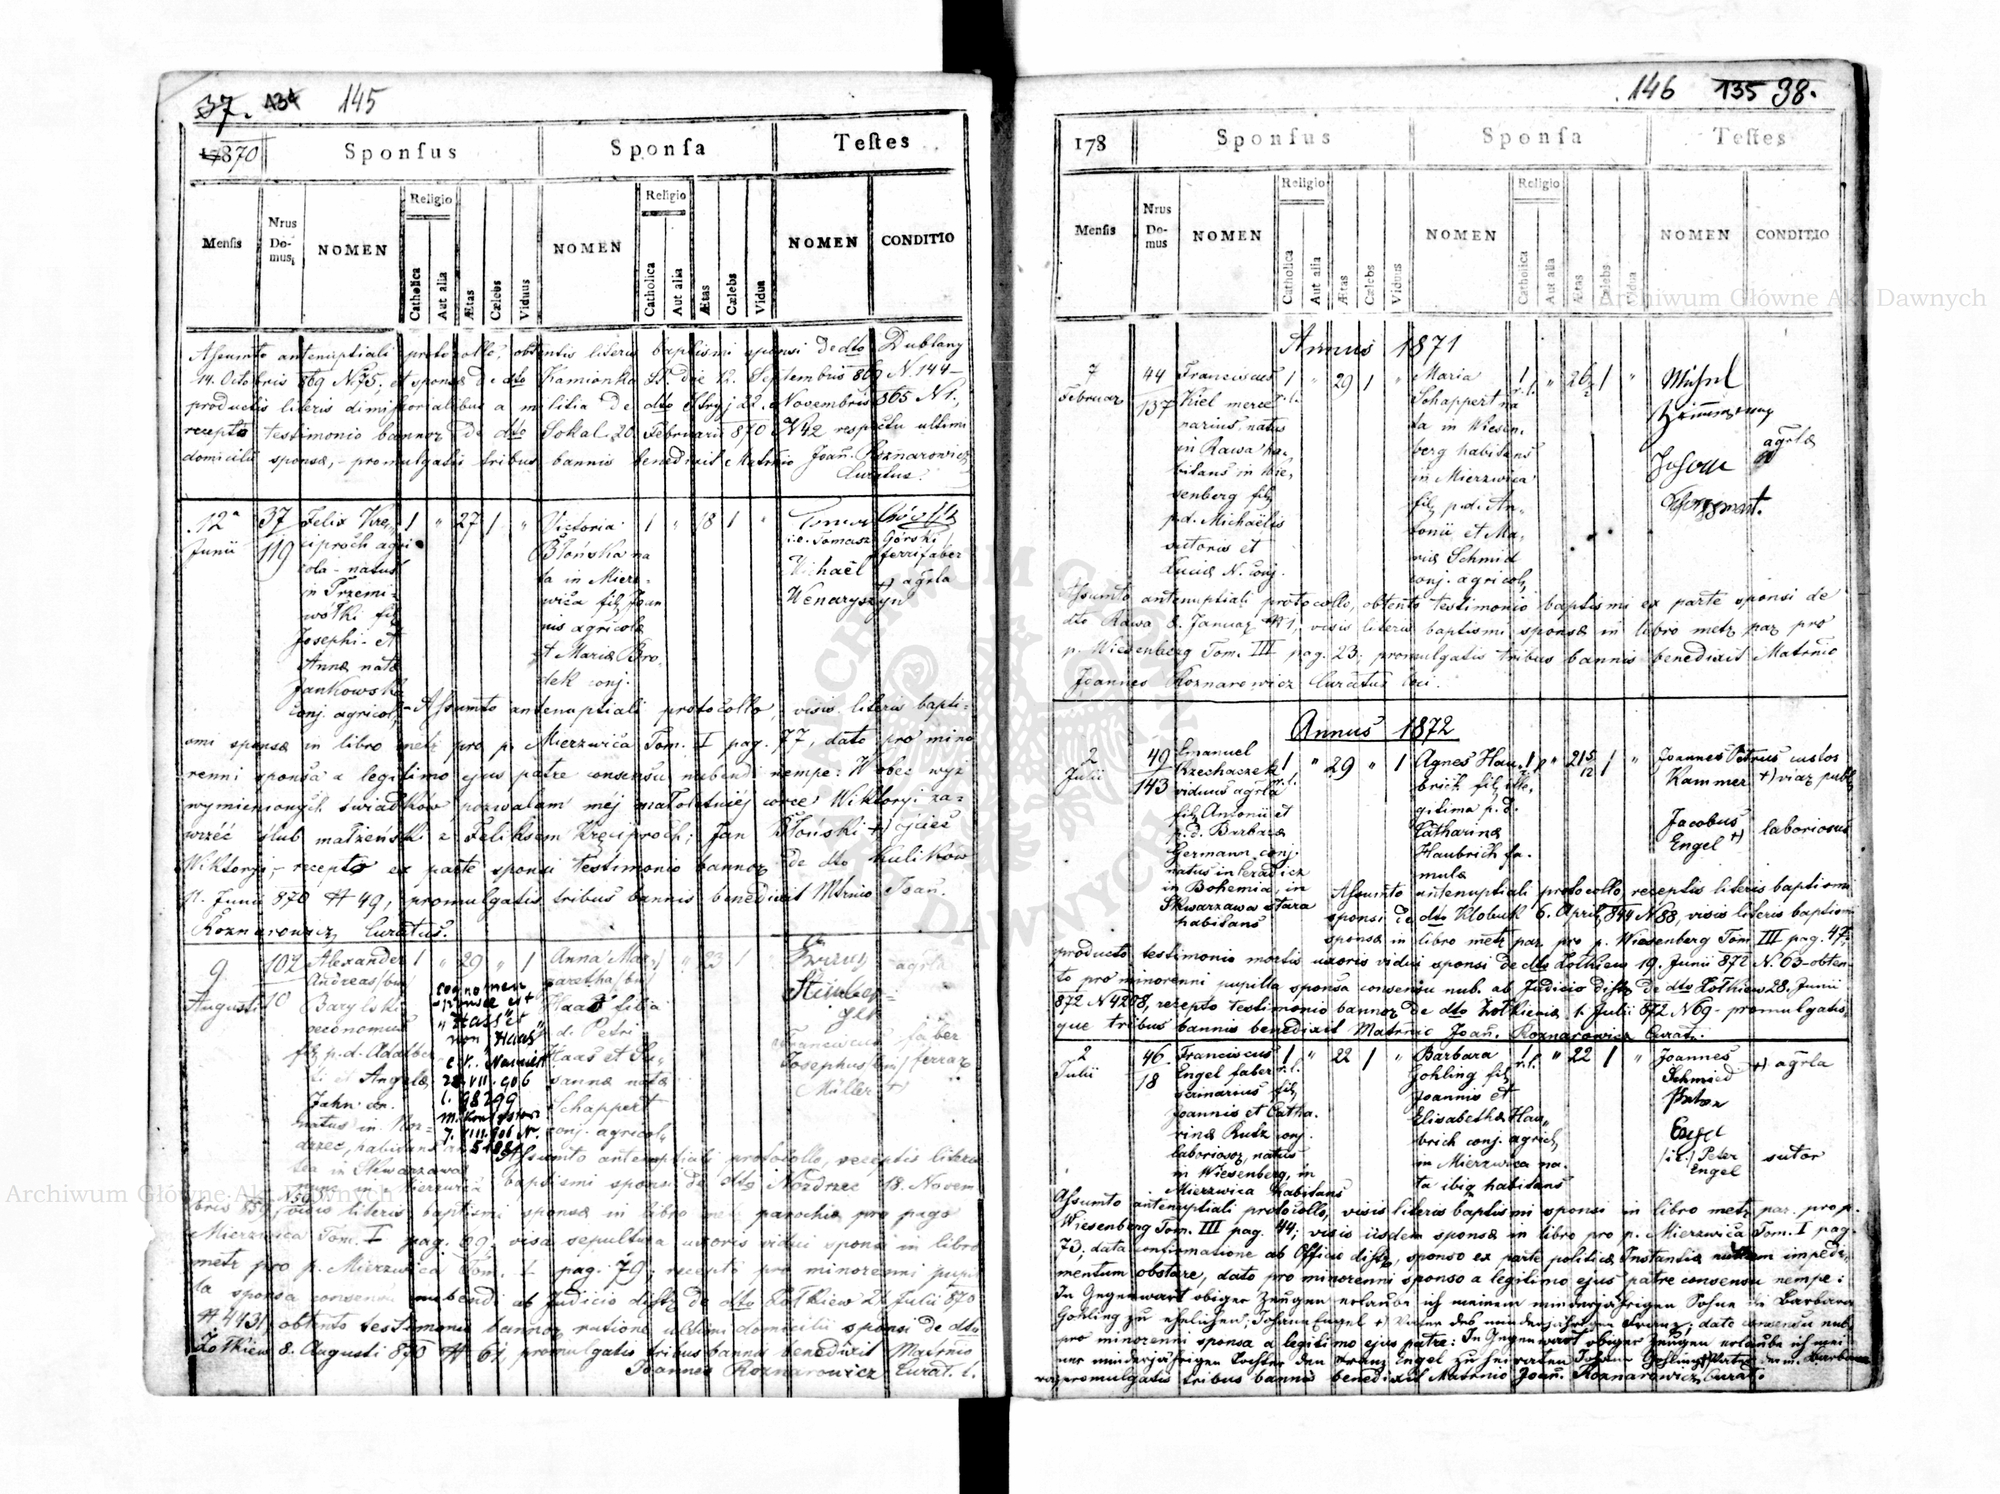 37. 134 145
1870 Sponſus Sponſa Teſtes
Menſis Nrus Domus NOMEN Religio Catholica Aut alia Ætas Cælebs Viduus NOMEN Religio Catholica Aut alia Ætas Cælebs Vidua NOMEN CONDITIO
Assumto antenuptiali protocollo, obtentis literis baptismi sponsi de dto Dublany
14. Octobris 869 N 75. et sponsæ de dto Kamionka St. die 12. Septembris 869 N. 144
productis literis dimissorialibus a militia de dto Stryj 22. Novembris 865 N 1.,
recepto testimonio bannor de dto Sokal 20. Februarii 870 N 42 respectu ultimi
domicilii sponsæ, promulgatis tribus bannis benedixit Matrnio Joañ. Roznarowicz
Curatus.
12ª Junii
37
119
Felix Kre-
ciproch agri
cola - natus
in Przemi-
wółki fil
Josephi et
Annæ natæ
Jankowska
conj. agricol,
1 " 27 1 "
Victoria
Błońska na
ta in Mierz-
wica fil Joan
nis agricolæ
et Mariæ Bro-
dek conj.
1 " 18 1 "
i.e. Tomasz Górski
ferrifaber
Michaël
Wenaryszyn
+) agrla
Assumto antenuptiali protocollo, visis literis bapti-
smi sponsæ in libro metr pro p. Mierzwica Tom. I pag. 77, dato pro mino
renni sponsa a legitimo ejus patre consensu nubendi nempe: Wobec wyż
wymienionych świadków pozwalam mej małoletniéj córce Wiktoryi za-
wrzéć ślub małżeński z Feliksem Kreciproch; Jan Błoński +) ojciec
Wiktoryi - recepto ex parte sponsi testimonio bannor de dto Kulików
11. Junii 870 N 49, promulgatis tribus bannis benedixit Mtrnio Joañ.
Roznarowicz Curatus.
9.
Augusti
107
10
Alexander
Andreas/bin/
Barylski
oeconomus
fil p.d. Adalber
ti et Angelæ
Jahn
natus in Noz-
drzec, habitans
1 " 29 " 1
cognomen
sponsæ est
"Hass" et
non "Haas"
28. VII. 906
l. 98299
7. VIII. 906 N.
51821
Anna Mar-
garetha/bin/
Haas filia
d. Petri
Haas et Su-
sannæ natæ
Schappert
conj. agricol,
1 " 23 1
Steinber-
ger
agrla
Franciscus
Josephus
Müller +)
faber
ferrar
Assumto antenuptiali protocollo, receptis literis
baptismi sponsi de dto Nozdrzec 18. Novem
bris 859, visis literis baptismi sponsæ in libro metr parochiæ pro pago
Mierzwica Tom. I pag. 99; visa sepultura uxoris vidui sponsi in libro
metr pro p. Mierzwica Tom. I pag. 79; recepto pro minorenni pupil
la sponsa consensu nubendi ab Judicio distr de dto Żołkiew 21. Julii 870
N 4431, obtento testimonio bannor ratione ultimi domicilii sponsi de dto
Żołkiew 8. Augusti 870 N 61, promulgatis tribus bannis benedixit Matrnio
Joannes Roznarowicz Curat. l.
146 135 38.
178 Sponſus Sponſa Teſtes
Menſis Nrus Domus NOMEN Religio Catholica Aut alia Ætas Cælebs Viduus NOMEN Religio Catholica Aut alia Ætas Cælebs Vidua NOMEN CONDITIO
Annus 1871
7
Februar
44
137
Franciscus
Kiel merce
narius, natus
in Rawa ha-
bitans in Wie-
senberg fil
p.d. Michaëlis
sutoris et
Luciæ N. conj.
1 r.l. " 29 1 "
Maria
Schappert na
ta in Wiesen-
berg habitans
in Mierzwica
fil p.d. An-
tonii et Ma-
riæ Schmid
conj. agricol,
1 r.l. " 26 1 "
agrlæ
Assumto antenuptiali protocollo, obtento testimonio baptismi ex parte sponsi de
dto Rawa 8. Januar N 1, visis literis baptismi sponsæ in libro metr par pro
p. Wiesenberg Tom. III pag. 23; promulgatis tribus bannis benedixit Matrnio
Joannes Roznarowicz Curatus loci.
Annus 1872
2
Julii
49
143
Emanuel
Krzechaczek
viduus agrla
fil Antonii et
p.d. Barbaræ
Germann conj.
natus in Hradicz
in Bohemia, in
Skwarzawa stara
habitans
1 r.l. " 29 " 1
Agnes Hau-
brich fil ille-
gitima p.d.
Catharinæ
Haubrich fa-
mulæ
1 " 21 5/12 1 "
Joannes Petrus
Kammer
custos
+) viar publ
Jacobus
Engel +)
laboriosus
Assumto antenuptiali protocollo, receptis literis baptismi
sponsi de dto Klobuk 6. April 844 N 88, visis literis baptismi
sponsæ in libro metr par pro p. Wiesenberg Tom. III pag. 47,
producto testimonio mortis uxoris vidui sponsi de dto Żołkiew 19. Junii 872 N. 63 - obten-
to pro minorenni pupilla sponsa consensu nub. ab Judicio distr de dto Żołkiew 28. Junii
872 N 4208, recepto testimonio bannor de dto Żołkiew 1. Julii 872 N 69 - promulgatis-
que tribus bannis benedixit Matrnio Joañ. Roznarowicz Curat.
2
Julii
46
18
Franciscus
Engel faber
scrinarius fil
Joannis et Catha-
rinæ Rutz conj.
laboriosor, natus
in Wiesenberg, in
Mierzwica habitans
1 r.l. " 22 1 "
Barbara
Gohling fil
Joannis et
Elisabethæ Hau-
brich conj. agricl,
in Mierzwica na-
ta ibiq habitans
1 r.l. " 22 1 "
Joannes
Schmied
+) agrla
Peter
Engel
/i.e./ Peter
Engel
sutor
Assumto antenuptiali protocollo, visis literis baptismi sponsi in libro metr par. pro p.
Wiesenberg Tom. III pag. 44; visis iisdem sponsæ in libro pro p. Mierzwica Tom. I pag.
73; data confirmatione ab Officio distr, sponso ex parte politicæ Instantiæ nullum impedi-
mentum obstare, dato pro minorenni sponso a legitimo ejus patre consensu nempe:
In Gegenwart obiger Zeugen erlaube ich meinem minderjährigen Sohne die Barbara
Gohling zu ehelichen; Johann Engel +) Vater des minderjährigen Franz; dato consensu nub.
pro minorenni sponsa a legitimo ejus patre: In Gegenwart obiger Zeugen erlaube ich mei
ner minderjährigen Tochter den Franz Engel zu heiraten Johann Gohling +) Vater der m. Barbara
promulgatis tribus bannis benedixit Matrnio Joañ. Roznarowicz Curat.
Archiwum Główne Akt Dawnych
Archiwum Główne Akt Dawnych
ARCHIWUM GŁÓWNE AKT DAWNYCH